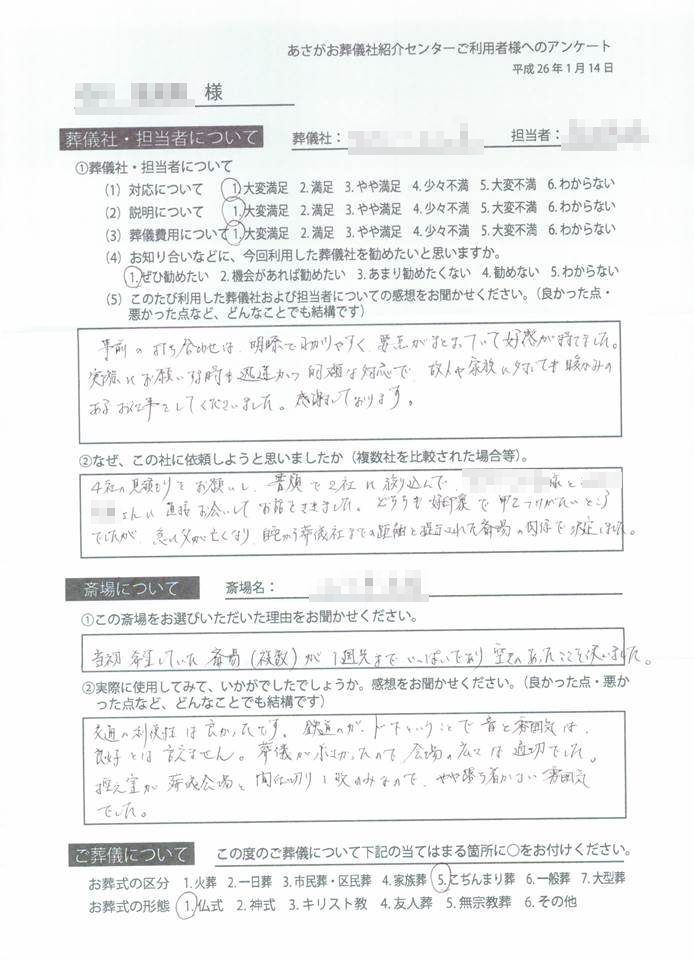 あさがお葬儀社紹介センターご利用者様へのアンケート
平成26年1月14日
様
葬儀社・担当者について 葬儀社： 担当者：
①葬儀社・担当者について
(1) 対応について 1.大変満足 2.満足 3.やや満足 4.少々不満 5.大変不満 6.わからない
(2) 説明について 1.大変満足 2.満足 3.やや満足 4.少々不満 5.大変不満 6.わからない
(3) 葬儀費用について 1.大変満足 2.満足 3.やや満足 4.少々不満 5.大変不満 6.わからない
(4) お知り合いなどに、今回利用した葬儀社を勧めたいと思いますか。
1.ぜひ勧めたい 2.機会があれば勧めたい 3.あまり勧めたくない 4.勧めない 5.わからない
(5) このたび利用した葬儀社および担当者についての感想をお聞かせください。（良かった点・
悪かった点など、どんなことでも結構です）
事前の打ち合わせは、明瞭で わかりやすく、要点がまとまっていて好感が持てました。
実際にお願いする時も迅速かつ的確な対応で、故人や家族に対しても暖かみの
あるお仕事をしてくださいました。感謝しております。
②なぜ、この社に依頼しようと思いましたか（複数社を比較された場合等）。
4社の見積もりをお願いし、書類で2社に絞り込んで、 様と
さんに直接お会いしてお話できました。どちらも好印象で甲乙つけがたいところ
でしたが、急に父が亡くなり、自宅から葬儀社までの距離と提示された斎場の関係で決定しました。
斎場について 斎場名：
①この斎場をお選びいただいた理由をお聞かせください。
当初希望していた斎場（複数）が1週先までいっぱいであり空きのあったここを使いました。
②実際に使用してみて、いかがでしたでしょうか。感想をお聞かせください。（良かった点・悪か
った点など、どんなことでも結構です）
交通の利便性は良かったです。鉄道のガード下ということで音と雰囲気は、
良好とは言えません。葬儀が小さかったので会場の広さは適切でした。
控え室が葬儀会場と間仕切り1枚のみなので、やや落ち着かない雰囲気
でした。
ご葬儀について この度のご葬儀について下記の当てはまる箇所に○をお付けください。
お葬式の区分 1.火葬 2.一日葬 3.市民葬・区民葬 4.家族葬 5.こぢんまり葬 6.一般葬 7.大型葬
お葬式の形態 1.仏式 2.神式 3.キリスト教 4.友人葬 5.無宗教葬 6.その他